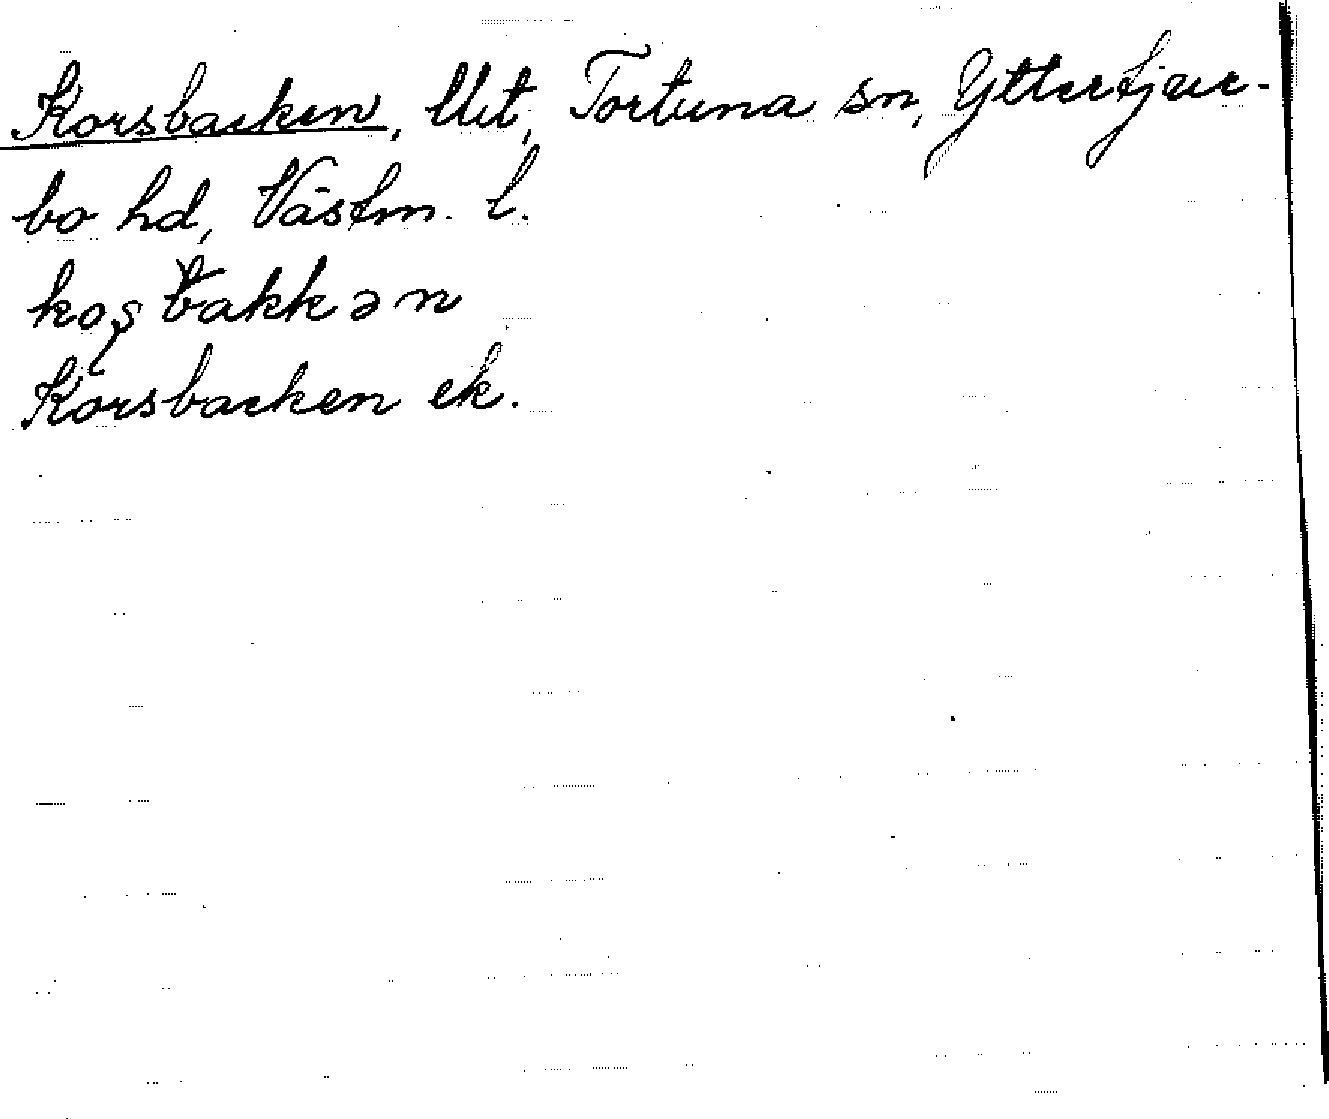 Korsbacken, Ut, Tortuna sn, Yttertjur-
bo hd, Västm. l.
koʂbakkən
Korsbacken ek.